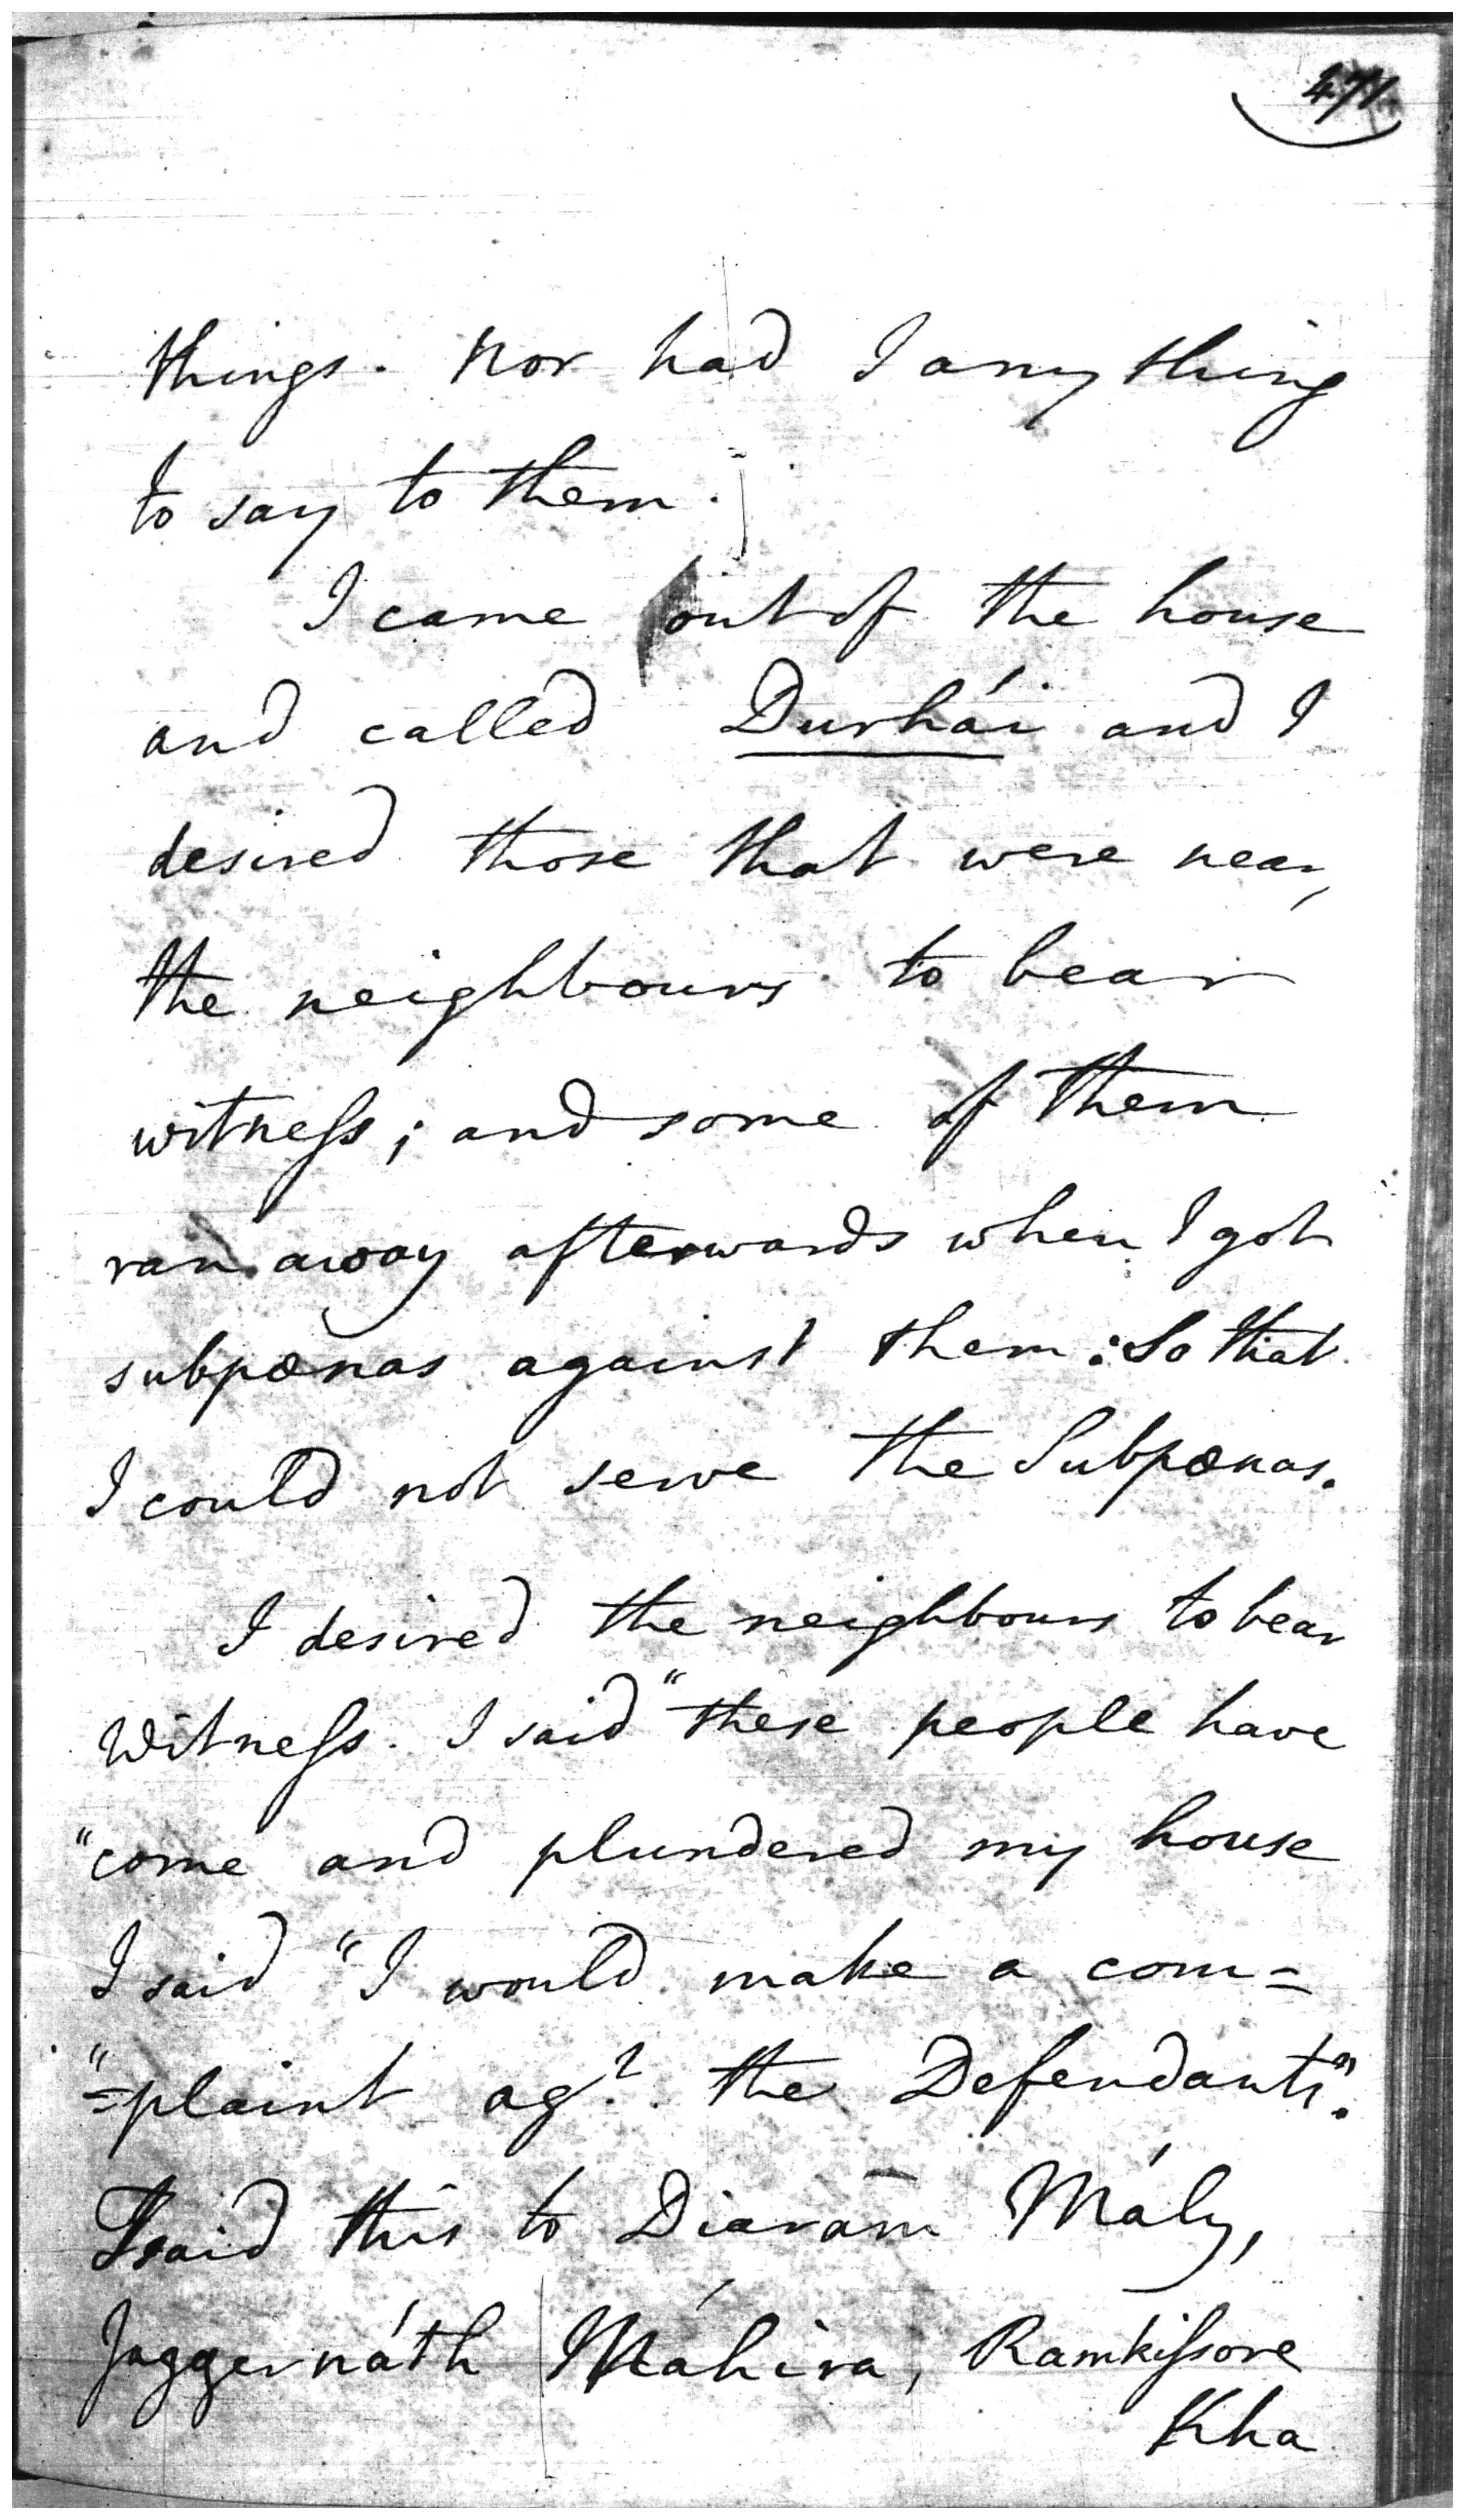 471
things. Nor had I any thing
to say to them.
I came out of the house
and called Durhái and I
desired those that were near,
the neighbours to bear
witneſs; and some of them
ran away afterwards when I got
subpœnas against them: So that
I could not serve the Subpœnas.
I desired the neighbours to bear
Witneſs. I said "these people have
"come and plundered my house
I said "I would make a com=
"=plaint agt. the Defendants".
I said this to Diarām Mály,
Jaggernáth Máhira, Ramkiſsore
Kha